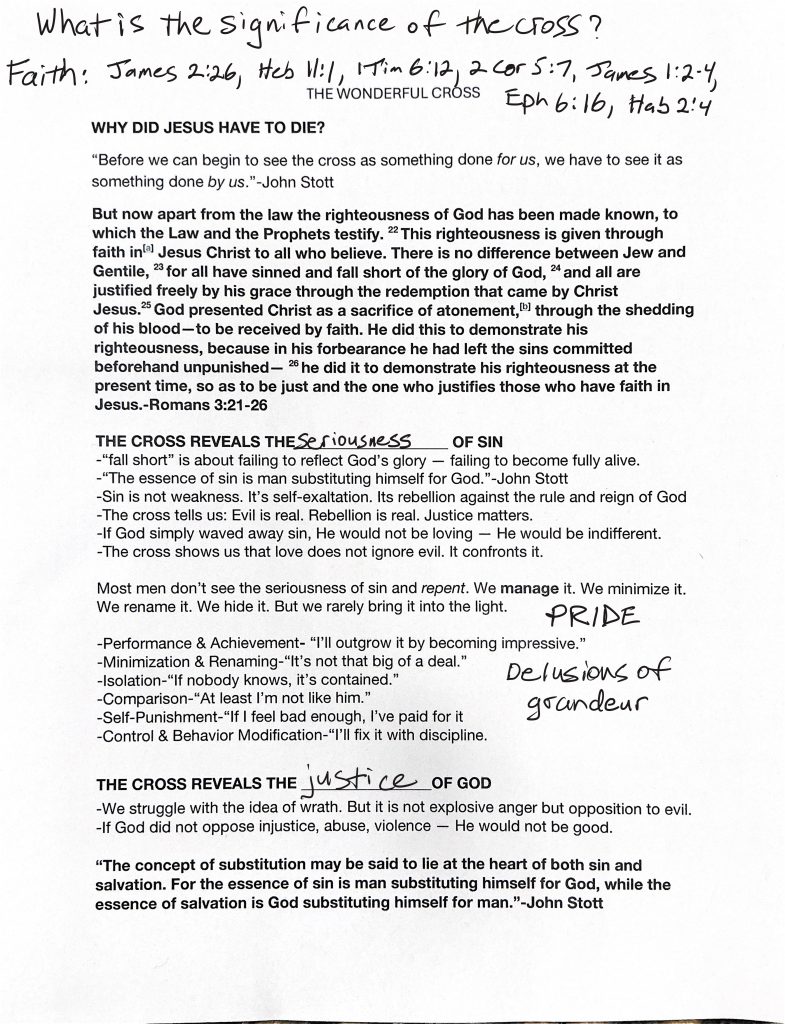 What is the significance of the cross?
Faith: James 2:26, Heb 11:1, 1 Tim 6:12, 2 Cor 5:7, James 1:2-4,
Eph 6:16, Hab 2:4
THE WONDERFUL CROSS
WHY DID JESUS HAVE TO DIE?
“Before we can begin to see the cross as something done for us, we have to see it as
something done by us.”-John Stott
But now apart from the law the righteousness of God has been made known, to
which the Law and the Prophets testify. 22 This righteousness is given through
faith in[a] Jesus Christ to all who believe. There is no difference between Jew and
Gentile, 23 for all have sinned and fall short of the glory of God, 24 and all are
justified freely by his grace through the redemption that came by Christ
Jesus.25 God presented Christ as a sacrifice of atonement,[b] through the shedding
of his blood—to be received by faith. He did this to demonstrate his
righteousness, because in his forbearance he had left the sins committed
beforehand unpunished— 26 he did it to demonstrate his righteousness at the
present time, so as to be just and the one who justifies those who have faith in
Jesus.-Romans 3:21-26
THE CROSS REVEALS THE seriousness OF SIN
-“fall short” is about failing to reflect God’s glory — failing to become fully alive.
-“The essence of sin is man substituting himself for God.”-John Stott
-Sin is not weakness. It’s self-exaltation. Its rebellion against the rule and reign of God
-The cross tells us: Evil is real. Rebellion is real. Justice matters.
-If God simply waved away sin, He would not be loving — He would be indifferent.
-The cross shows us that love does not ignore evil. It confronts it.
Most men don’t see the seriousness of sin and repent. We manage it. We minimize it.
We rename it. We hide it. But we rarely bring it into the light.
PRIDE
-Performance & Achievement- “I’ll outgrow it by becoming impressive.”
-Minimization & Renaming-“It’s not that big of a deal.”
-Isolation-“If nobody knows, it’s contained.”
-Comparison-“At least I’m not like him.”
-Self-Punishment-“If I feel bad enough, I’ve paid for it
-Control & Behavior Modification-“I’ll fix it with discipline.
Delusions of
grandeur
THE CROSS REVEALS THE justice OF GOD
-We struggle with the idea of wrath. But it is not explosive anger but opposition to evil.
-If God did not oppose injustice, abuse, violence — He would not be good.
“The concept of substitution may be said to lie at the heart of both sin and
salvation. For the essence of sin is man substituting himself for God, while the
essence of salvation is God substituting himself for man.”-John Stott